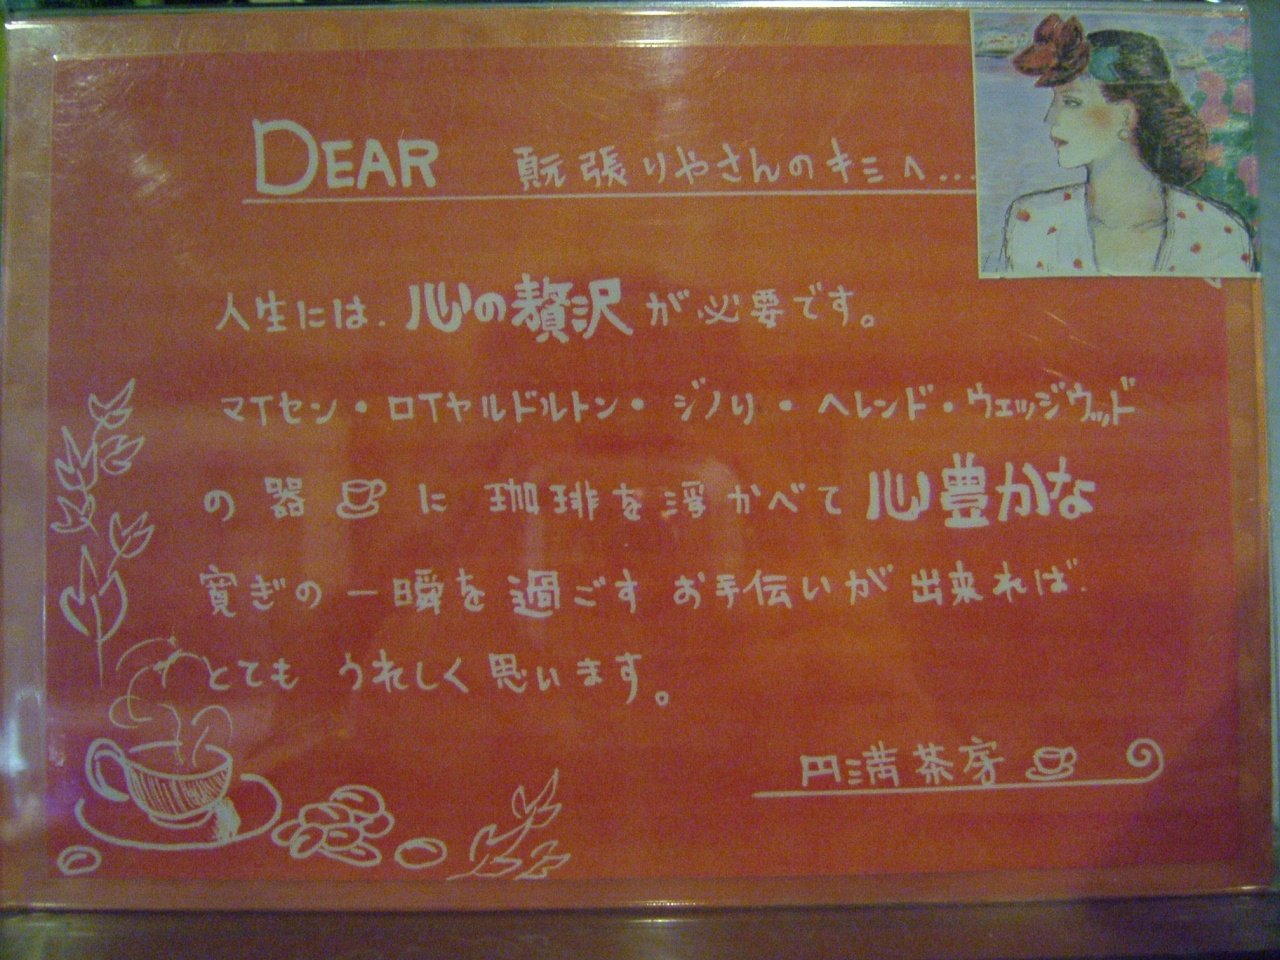 DEAR 頑張りやさんのキミへ...
人生には、心の贅沢が必要です。
マイセン・ロイヤルドルトン・ジノリ・ヘレンド・ウェッジウッド
の器に珈琲を浮かべて心豊かな
寛ぎの一瞬を過ごすお手伝いが出来れば、
とてもうれしく思います。
円満茶房